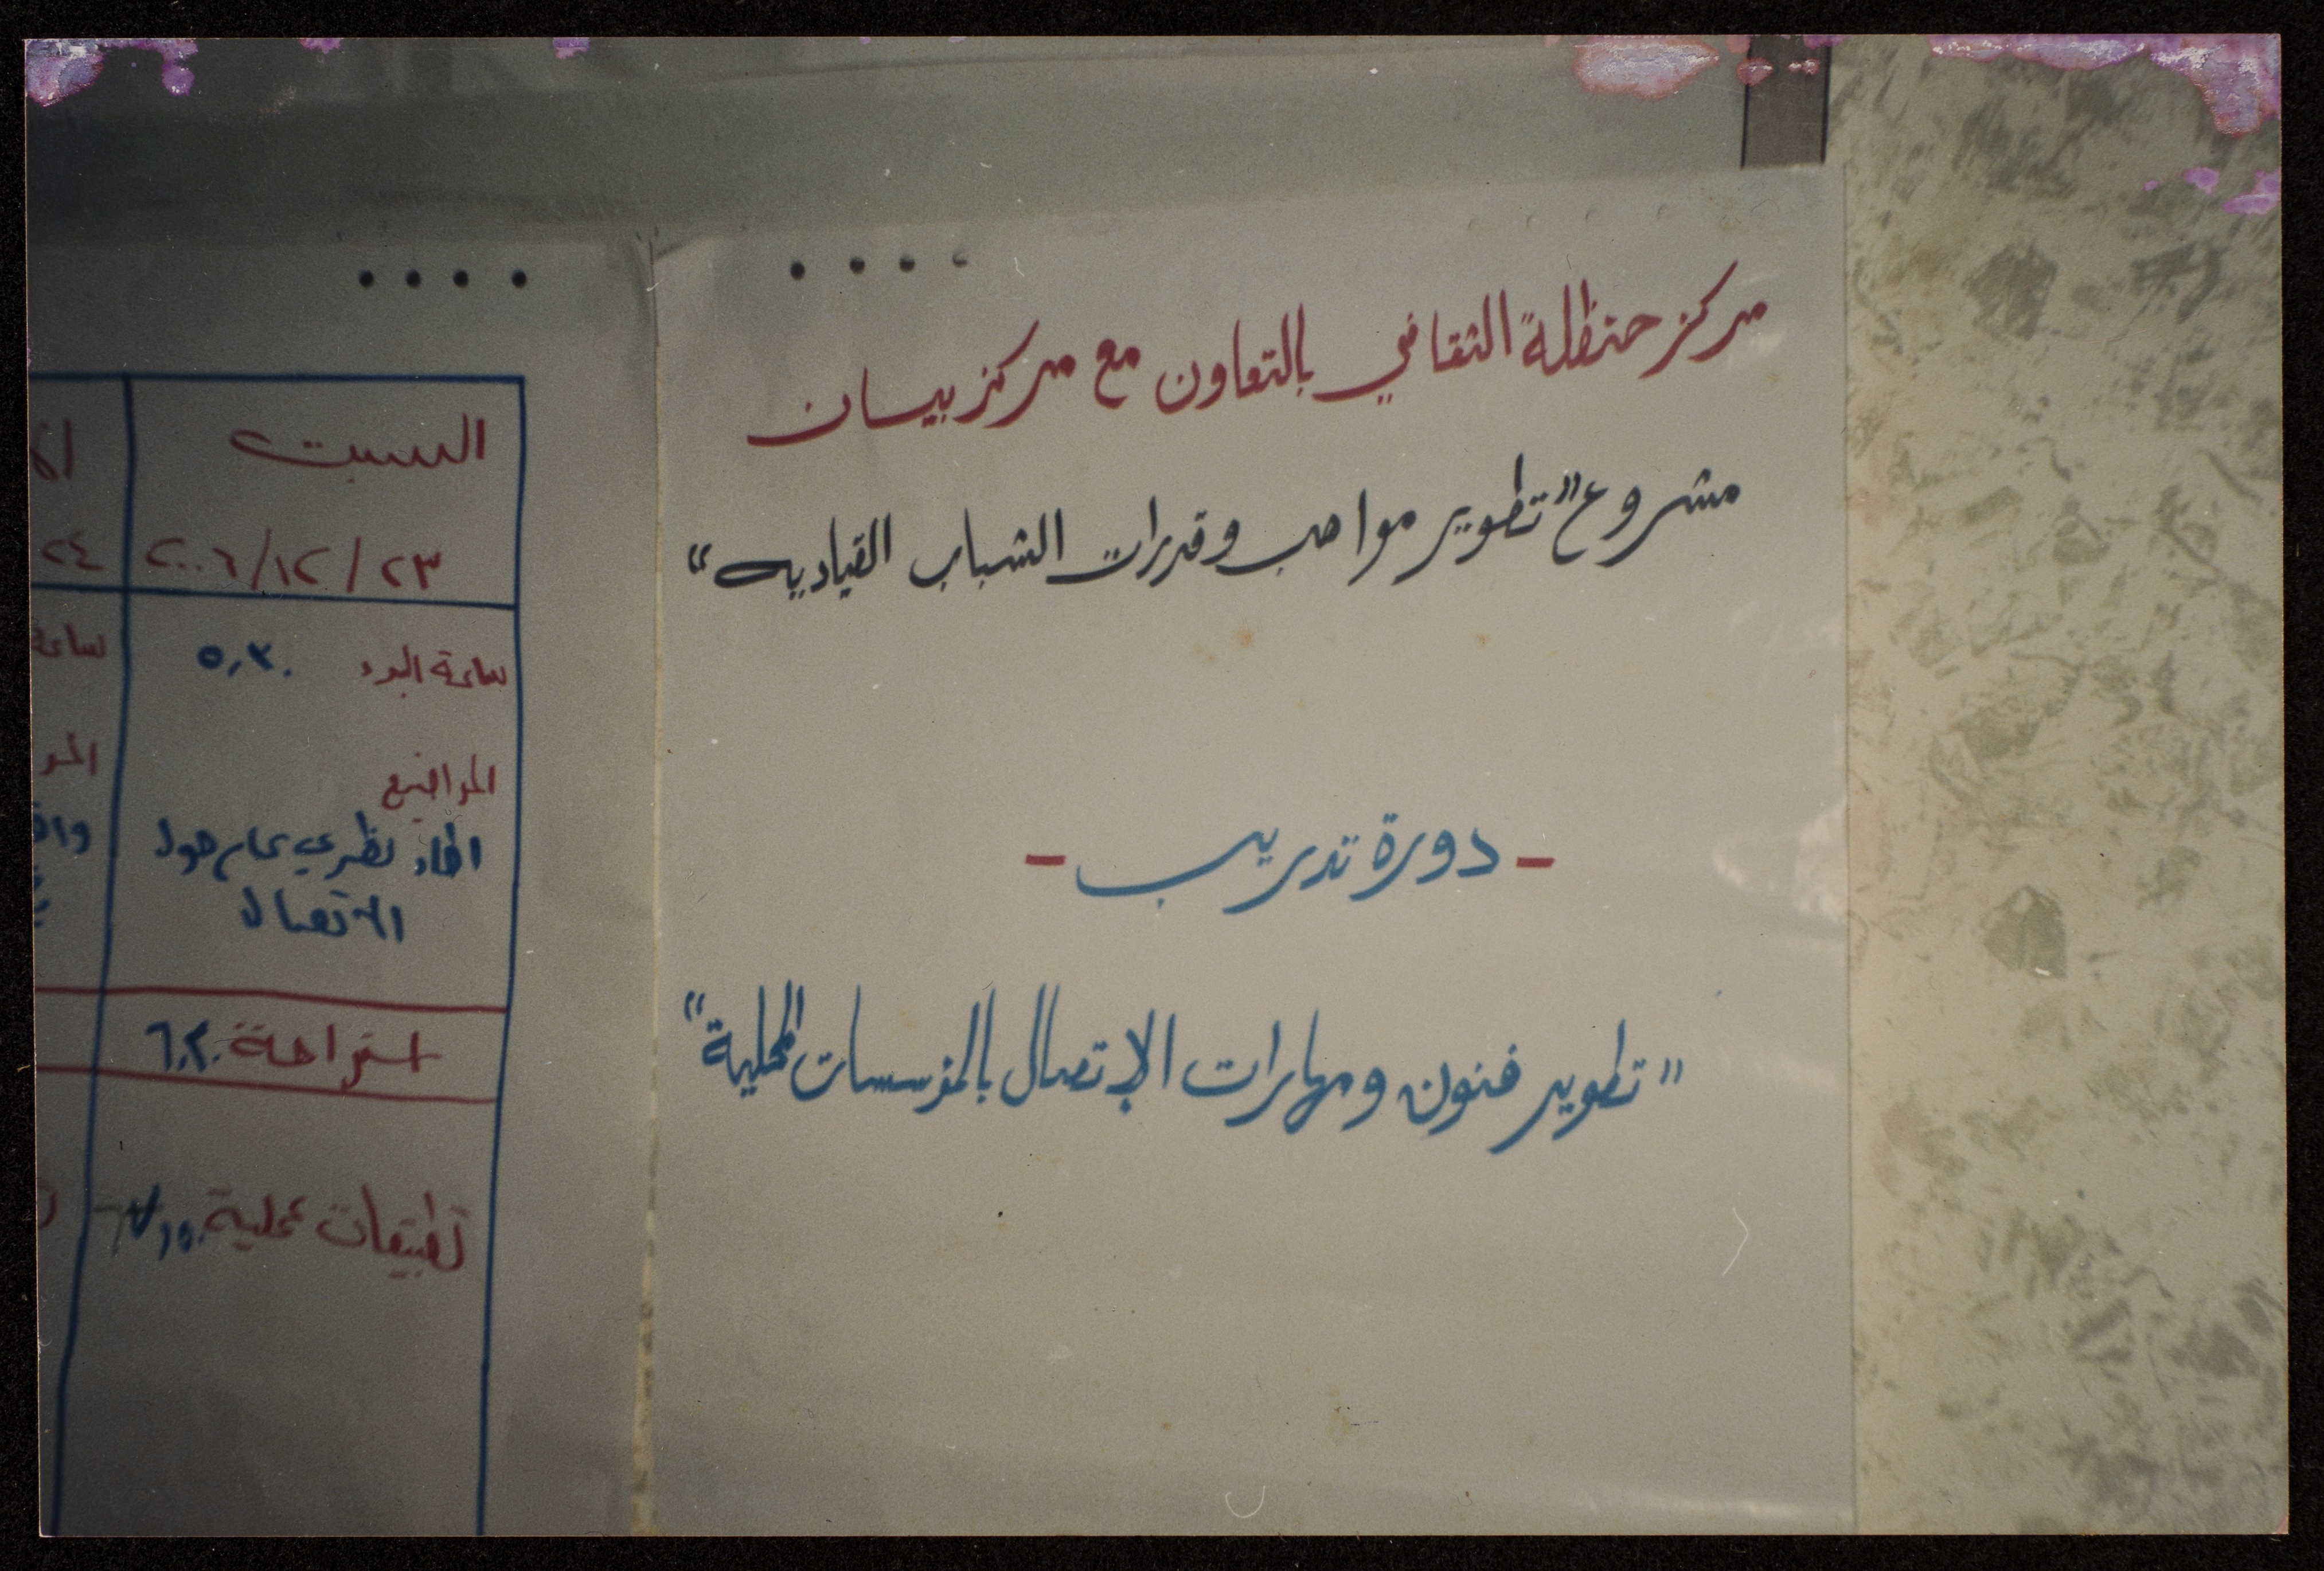 مركز حنظلة الثقافي بالتعاون مع مركز بيسان
مشروع "تطوير مواهب وقدرات الشباب القياديه"
- دورة تدريب -
"تطوير فنون ومهارات الإتصال بالمؤسسات المحلية"
السبت
٢٣/١٢/٢٠٠٦
ساعة البدء ٥,٣٠
المواضيع
اطار نظري عام حول
الاتصال
استراحة
تطبيقات عملية
٢٤
ساعة
المو